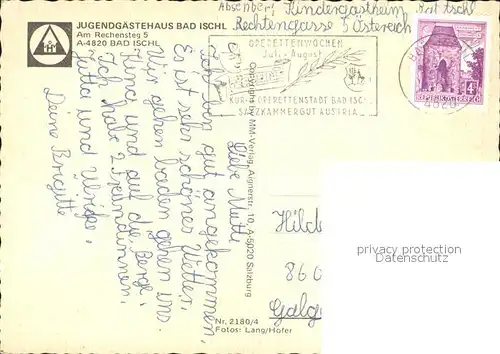 JUGENDGÄSTEHAUS BAD ISCHL
Am Rechensteg 5
A-4820 BAD ISCHL
Absender: Kindergästheim, Bad Ischl
Rechtengasse 5 Österreich
OPERETTENWOCHEN
Juli - August
KUR- OPERETTENSTADT BAD ISCHL
SALZKAMMERGUT AUSTRIA
4820
4 S
REPUBLIK ÖSTERREICH
Liebe Mutti
Ich bin gut angekommen,
Es ist sehr schönes Wetter.
Wir gehen baden gehen ins
Kino und auf die Berge.
Ich habe 2 Freundinnen.
Jutta und Ulrike.
Deine Brigitte
Copyright by MM-Verlag, Aignerstr. 10, A-5020 Salzburg
Hild
860
Galg
Nr. 2180/4
Fotos: Lang/Hofer
privacy protection
for Oldthing